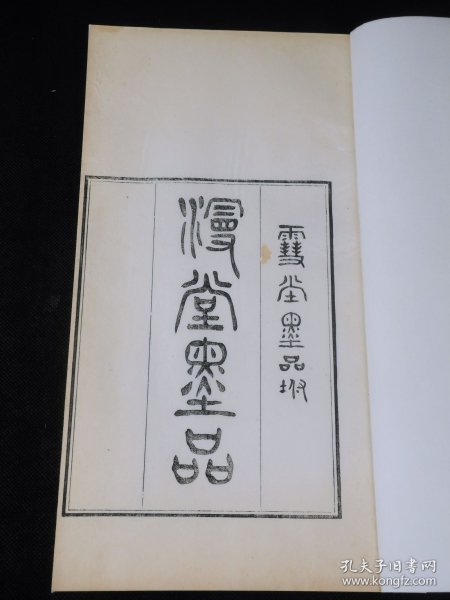 雪堂墨品坿
漫堂墨品
孔夫子旧书网
www.kongfz.com